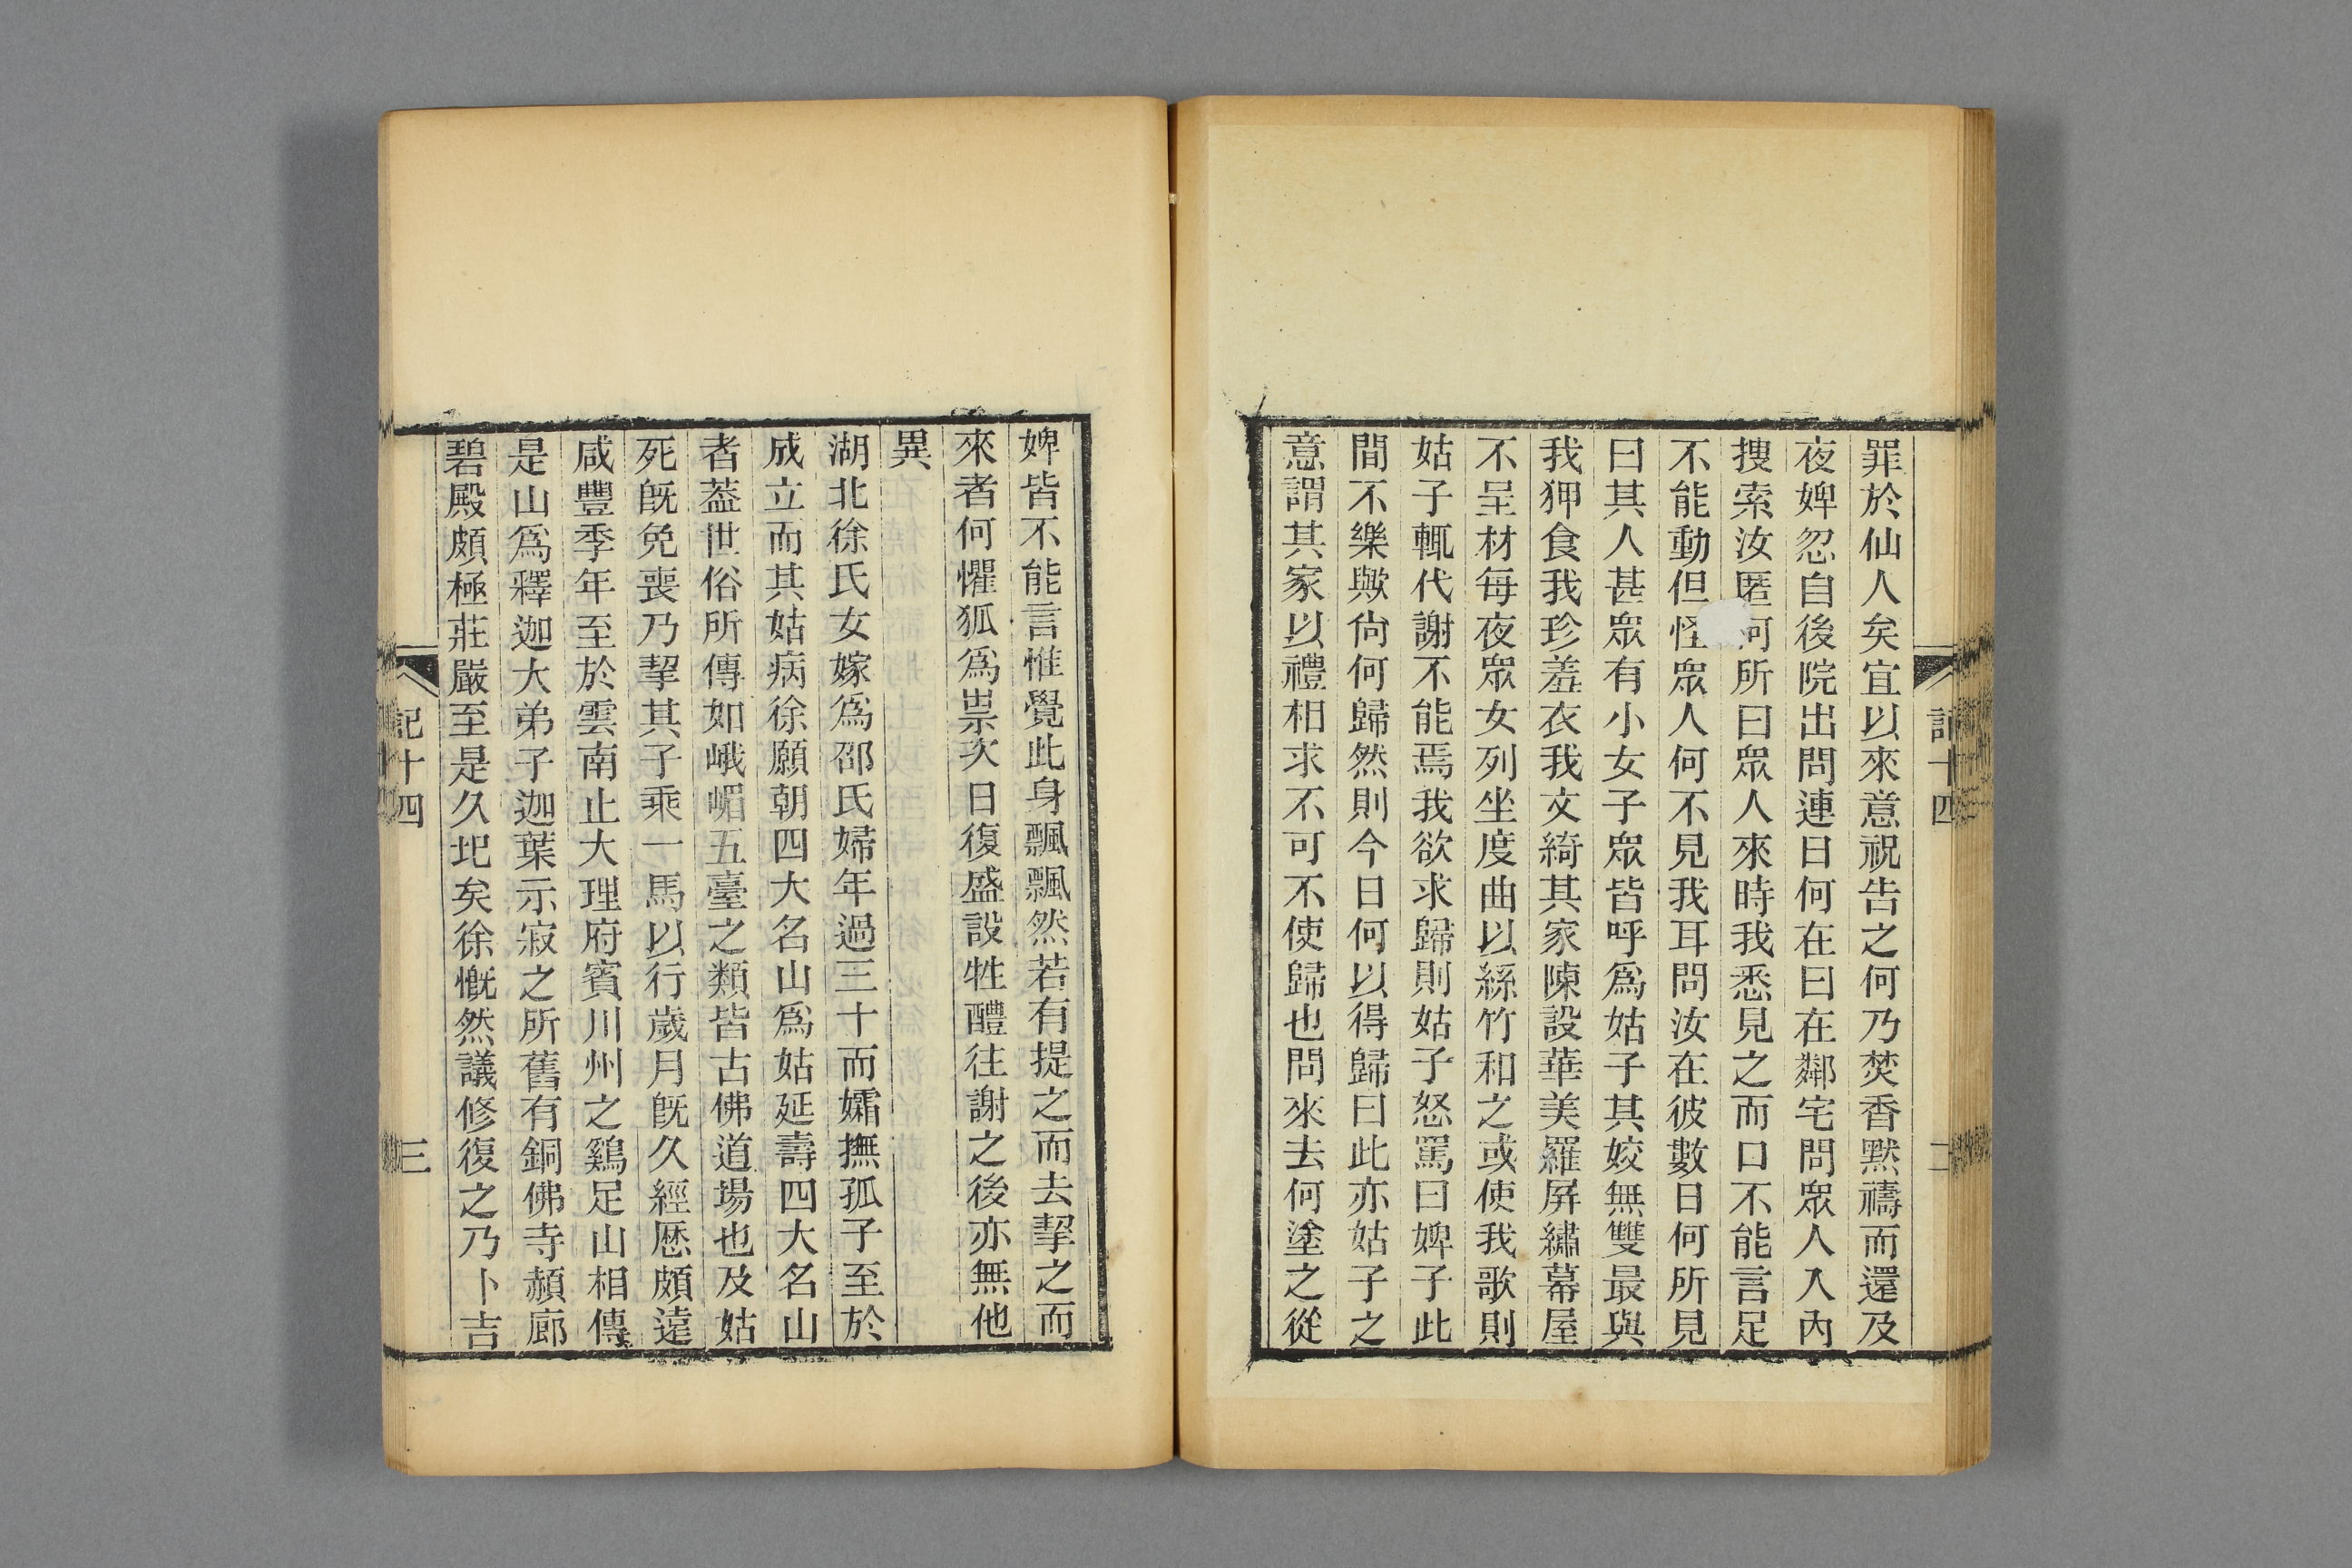 罪於仙人矣宜以來意祝告之何乃焚香默禱而還及
夜婢忽自後院出問連日何在曰在鄰宅問眾人入內
搜索汝匿何所曰眾人來時我悉見之而口不能言足
不能動但怪眾人何不見我耳問汝在彼數日何所見
曰其人甚眾有小女子眾皆呼為姑子其姣無雙最與
我狎食我珍羞衣我文綺其家陳設華美羅屏繡幕屋
不呈材每夜眾女列坐度曲以絲竹和之或使我歌則
姑子輒代謝不能焉我欲求歸則姑子怒罵曰婢子此
間不樂歟尙何歸然則今日何以得歸曰此亦姑子之
意謂其家以禮相求不可不使歸也問來去何塗之從
記十四
二
婢皆不能言惟覺此身飄飄然若有提之而去挈之而
來者何懼狐為祟次日復盛設牲醴往謝之後亦無他
異
湖北徐氏女嫁為邵氏婦年過三十而孀撫孤子至於
成立而其姑病徐願朝四大名山為姑延壽四大名山
者葢世俗所傳如峨嵋五臺之類皆古佛道場也及姑
死旣免喪乃挈其子乘一馬以行歲月旣久經歷頗遠
咸豐季年至於雲南止大理府賓川州之鷄足山相傳
是山為釋迦大弟子迦葉示寂之所舊有銅佛寺赬廊
碧殿頗極莊嚴至是久圮矣徐慨然議修復之乃卜吉
記十四
三